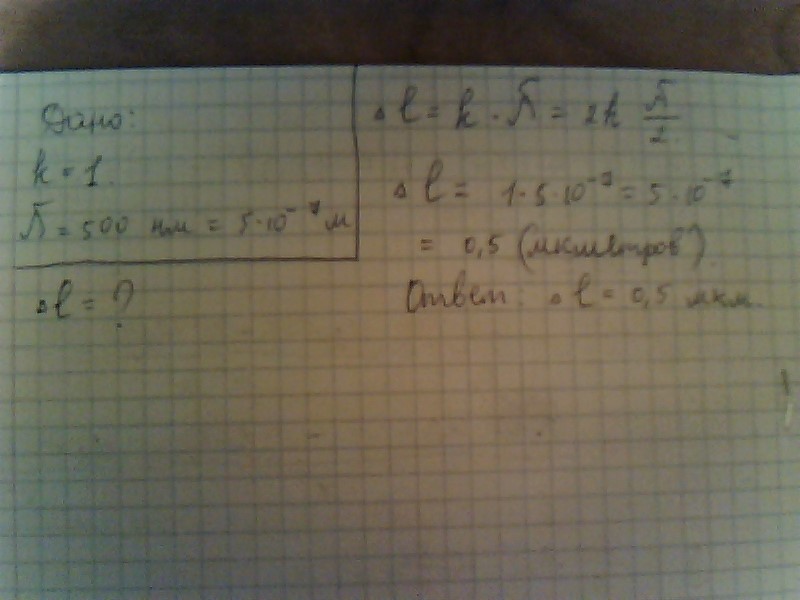 Дано:
k = 1.
λ = 500 нм = 5·10⁻⁷ м
Δl = ?
Δl = k · λ = 2k λ/2
Δl = 1·5·10⁻⁷ = 5·10⁻⁷
= 0,5 (мкметров)
Ответ: Δl = 0,5 мкм.